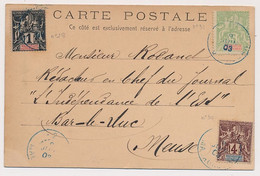 CARTE POSTALE
Ce côté est exclusivement réservé à l'adresse.
Monsieur Roland
Rédacteur en Chef du Journal
"L'Indépendance de l'Est"
Bar-le-Duc
Meuse
03